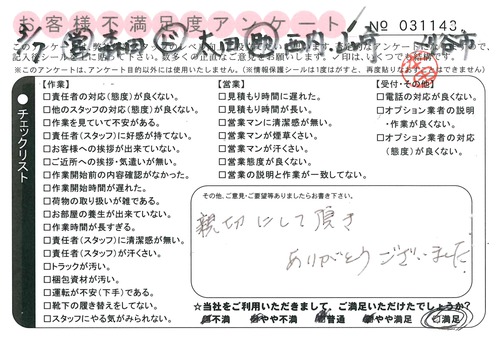 お客様不満足度アンケート
No 031143
5/7 営 森田 ビ 太田 助 西内 小寺 刈谷市
※このアンケートは、アンケート目的以外には使用いたしません。(※情報保護シールは1度はがすと、再度貼りなおしができません)
チェックリスト
【作業】
□責任者の対応(態度)が良くない。
□他のスタッフの対応(態度)が良くない。
□作業を見ていて不安がある。
□責任者(スタッフ)に好感が持てない。
□お客様への挨拶が出来ていない。
□ご近所への挨拶・気遣いが無い。
□作業開始前の内容確認がなかった。
□作業開始時間が遅れた。
□荷物の取り扱いが雑である。
□お部屋の養生が出来ていない。
□作業時間が長すぎる。
□責任者(スタッフ)に清潔感が無い。
□責任者(スタッフ)が汗くさい。
□トラックが汚い。
□梱包資材が汚い。
□運転が不安(下手)である。
□靴下の履き替えをしてない。
□スタッフにやる気がみられない。
【営業】
□見積もり時間に遅れた。
□見積もり時間が長い。
□営業マンに清潔感が無い。
□営業マンが煙草くさい。
□営業マンが汗くさい。
□営業態度が良くない。
□営業の説明と作業が一致してない。
【受付・その他】
□電話の対応が良くない。
□オプション業者の説明・作業が良くない。
□オプション業者の対応(態度)が良くない。
その他、ご意見・ご要望等ありましたらお書き下さい。
親切にして頂き
ありがとうございました
☆当社をご利用いただきまして、ご満足いただけたでしょうか?
□不満 □やや不満 □普通 □やや満足 □満足